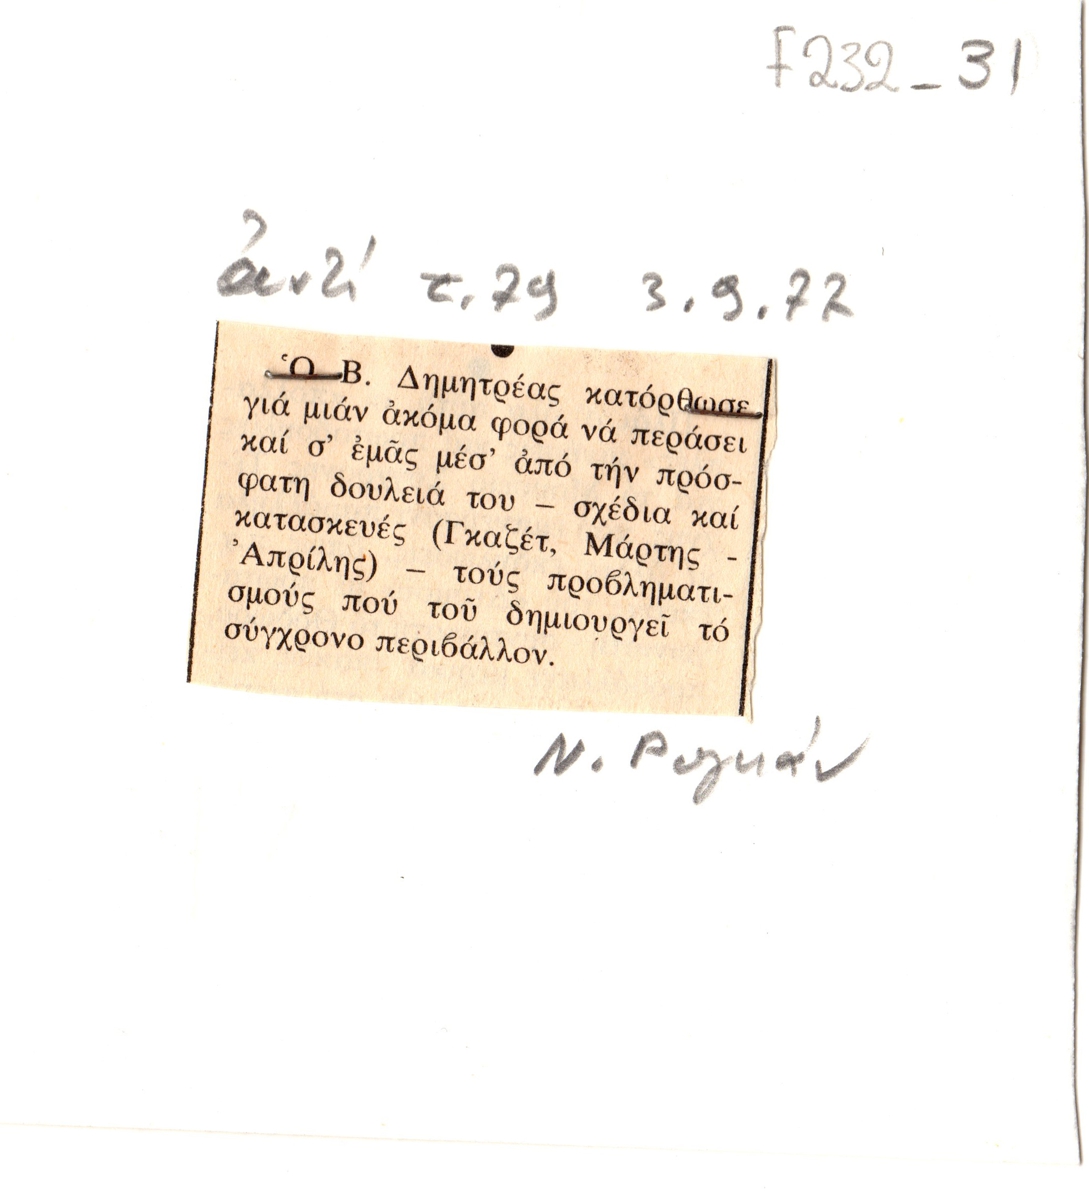 F232-31
ἀντί τ. 79 3.9.77
Ὁ Β. Δημητρέας κατόρθωσε
γιά μιάν ἀκόμα φορά νά περάσει
καί σ' ἐμᾶς μέσ' ἀπό τήν πρόσ-
φατη δουλειά του – σχέδια καί
κατασκευές (Γκαζέτ, Μάρτης -
Ἀπρίλης) – τούς προβληματι-
σμούς πού τοῦ δημιουργεῖ τό
σύγχρονο περιβάλλον.
Ν.